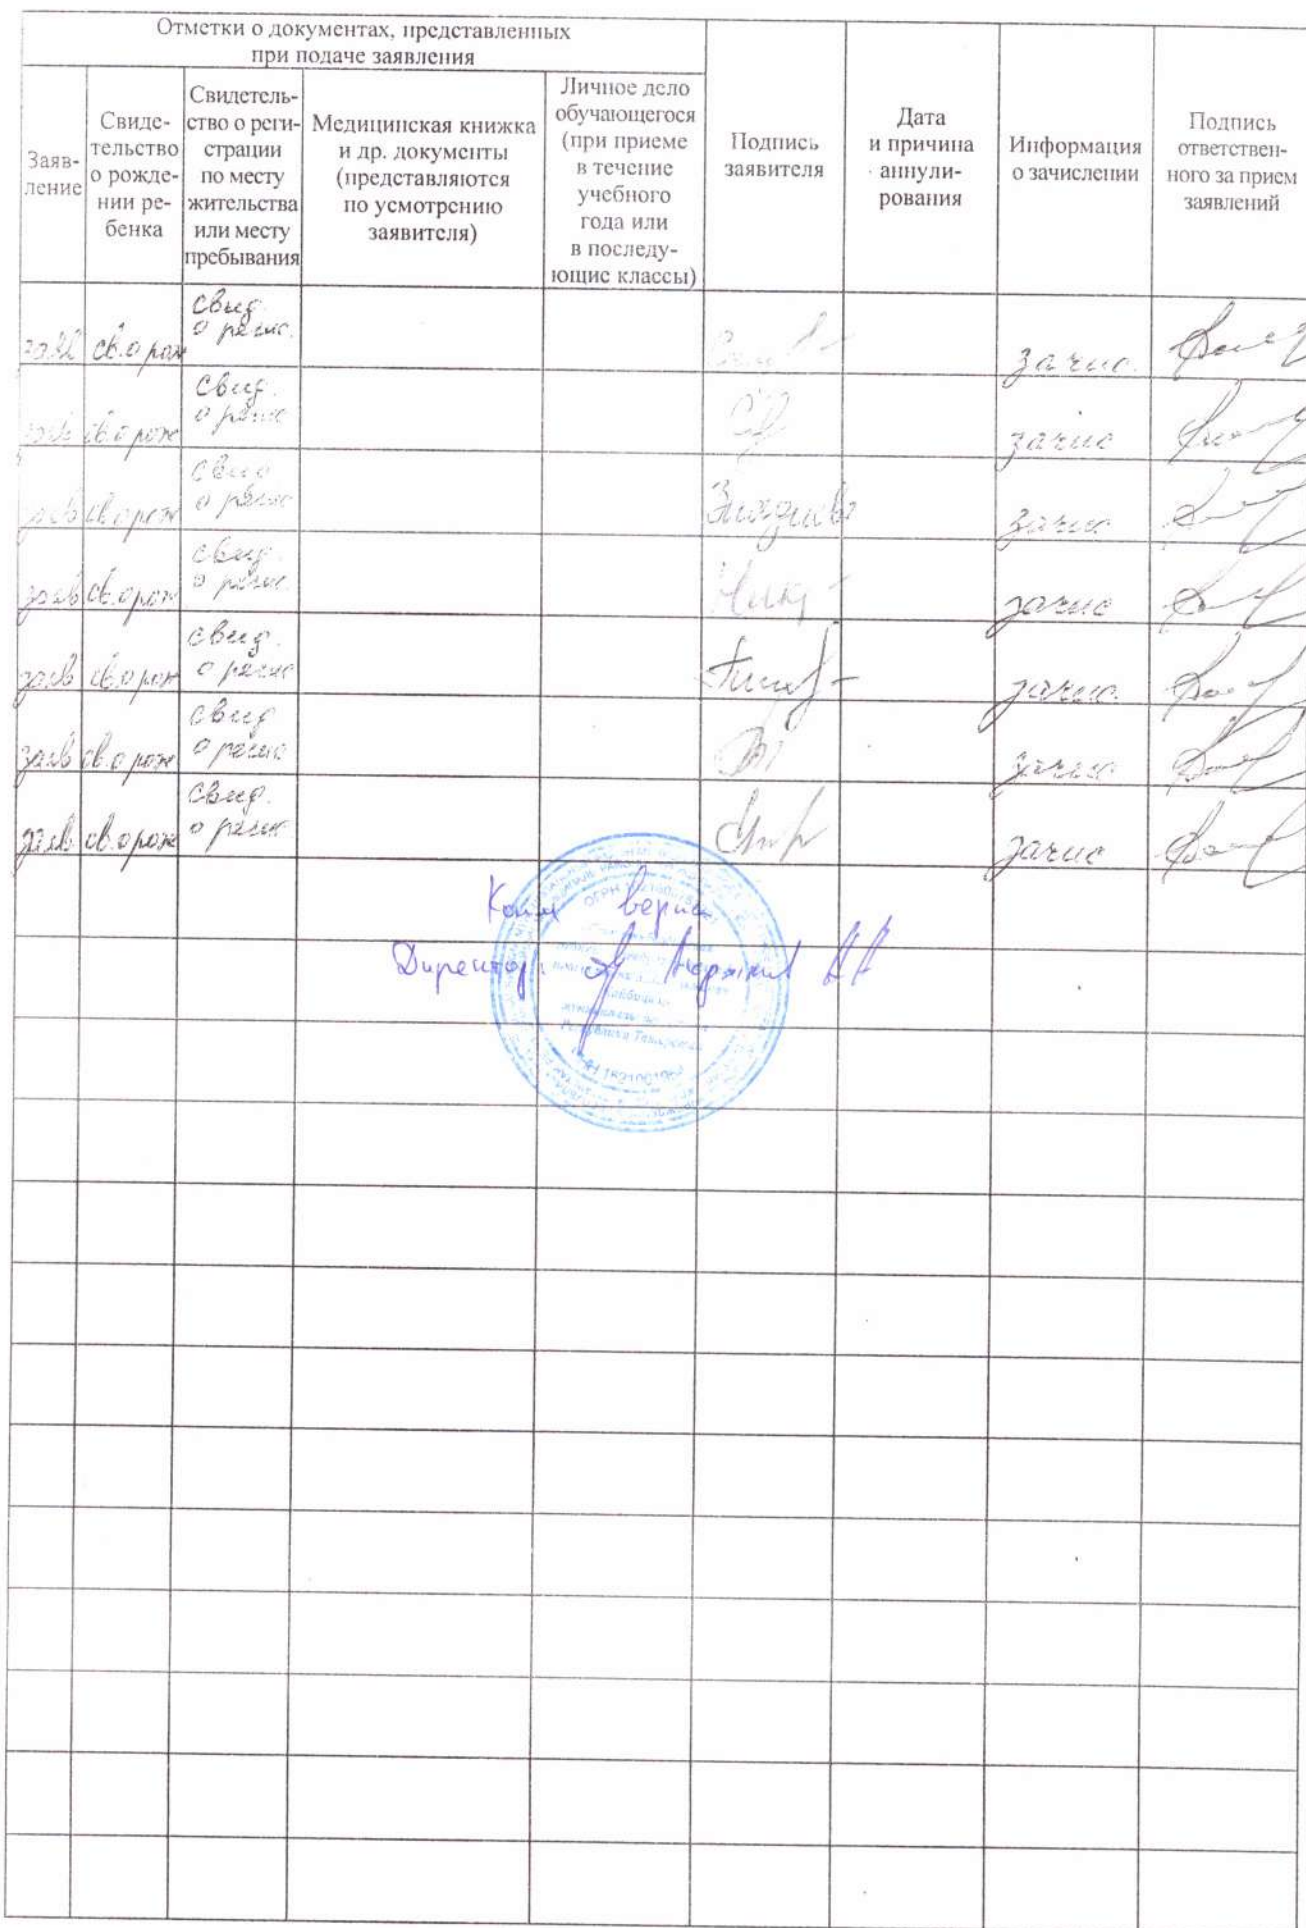 Отметки о документах, представленных
при подаче заявления
Заяв-
ление
Свиде-
тельство
о рожде-
нии ре-
бенка
Свидетель-
ство о реги-
страции
по месту
жительства
или месту
пребывания
Медицинская книжка
и др. документы
(представляются
по усмотрению
заявителя)
Личное дело
обучающегося
(при приеме
в течение
учебного
года или
в последу-
ющие классы)
Подпись
заявителя
Дата
и причина
аннули-
рования
Информация
о зачислении
Подпись
ответствен-
ного за прием
заявлений
заяв св.о рож свид.
о регис. зачис.
заяв св.о рож свид.
о регис зачис
заяв св.о рож свид
о регис зачис
заяв св.о рож свид.
о регис. зачис
заяв св.о рож свид.
о регис зачис.
заяв св.о рож свид
о регис зачис
заяв св.о рож свид.
о регис зачис
Копия верна
Директор
ОГРН
Республики Татарстан